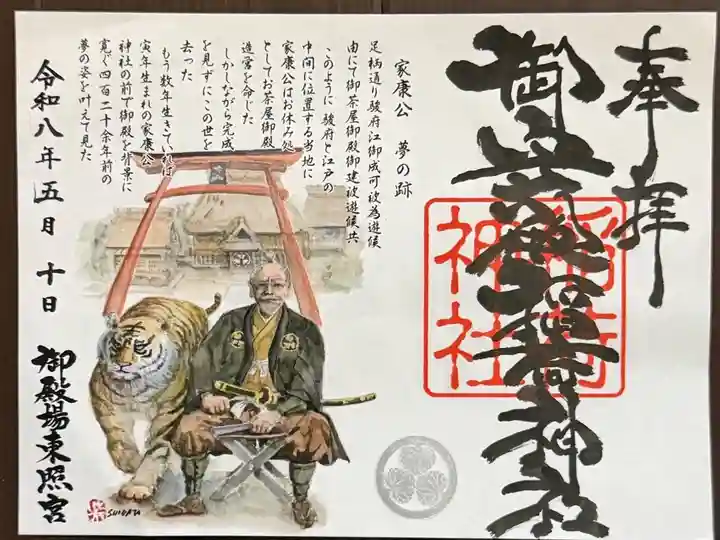 奉拝
御殿場稲荷神社
稲荷
神社
家康公 夢の跡
足柄通り駿府江御成可被為遊候
由にて御茶屋御殿御建被遊候共
このように駿府と江戸の
中間に位置する当地に
家康公はお休み処
としてお茶屋御殿
造営を命じた
しかしながら完成
を見ずにこの世を
去った
もう数年生きていれば
寅年生まれの家康公
神社の前で御殿を背景に
寛ぐ四百二十余年前の
夢の姿を叶えて見た
令和八年五月十日
御殿場東照宮
SHIGATA